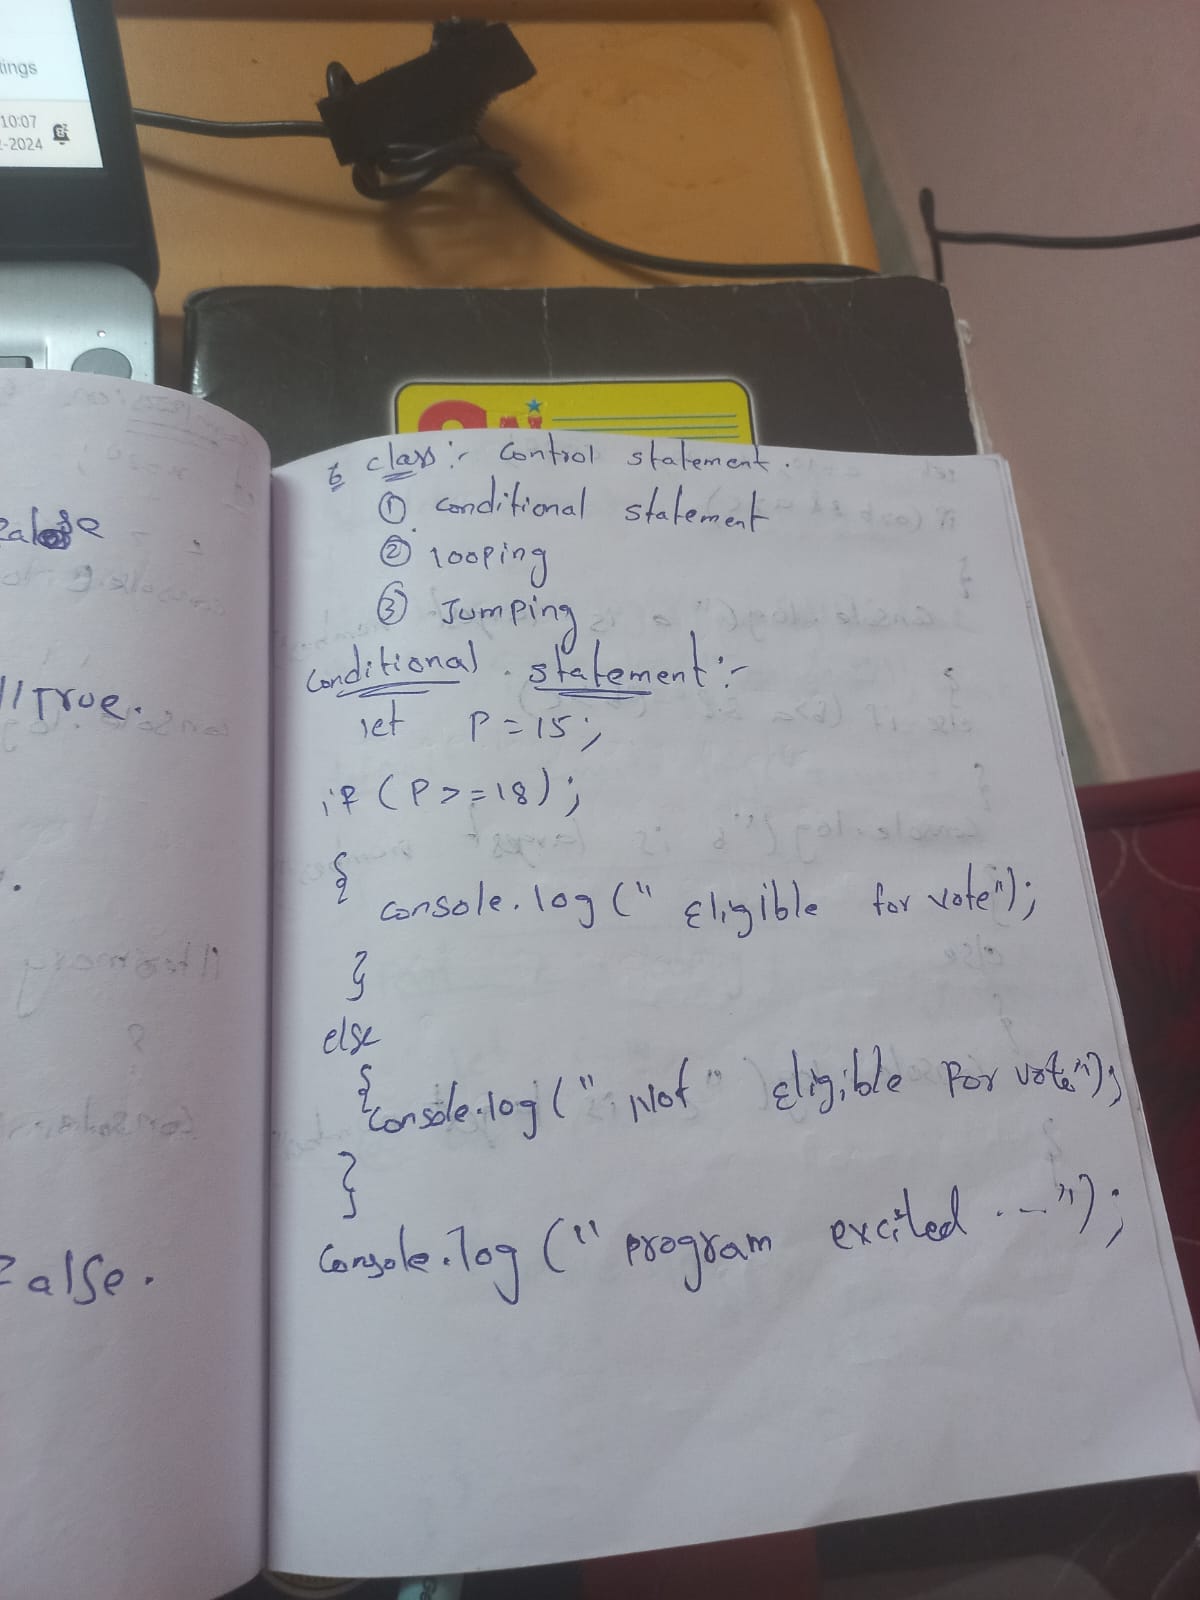 tings
10:07
-2024
6 class :- control statement.
① conditional statement
② looping
③ Jumping
conditional statement :-
let P = 15;
if (P >= 18);
{
console.log (" Eligible for vote");
}
else
{
console.log (" Not" Eligible For vote");
}
console.log (" program excited ...");
False
//True.
False.